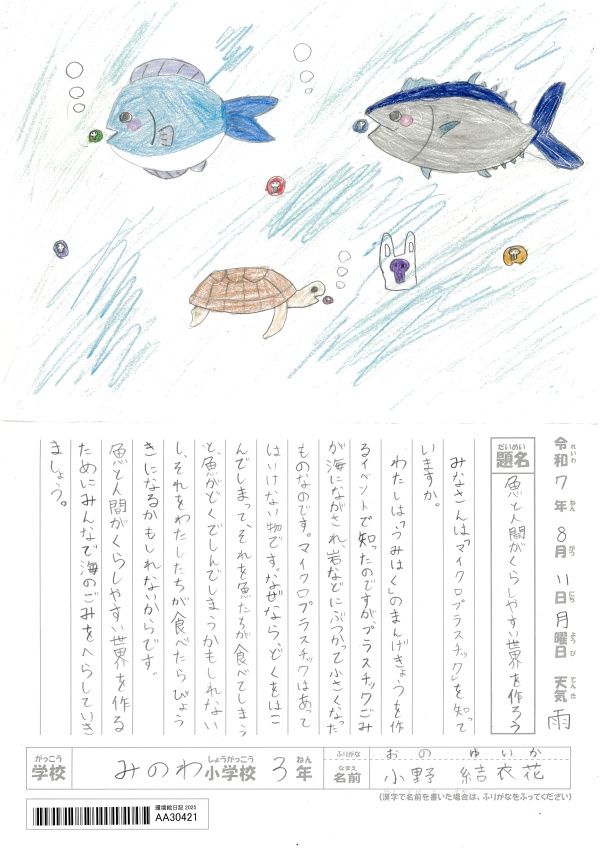 令和7年8月11日月曜日 天気雨
れいわ ねん がつ にち ようび てんき
だいめい
題名
魚と人間がくらしやすい世界を作ろう
みなさんは「マイクロプラスチック」を知って
いますか。
わたしは、「うみはく」のまんげきょうを作
るイベントで知ったのですが、プラスチックごみ
が海にながされ、岩などにぶつかって小さくなった
ものなのです。マイクロプラスチックはあって
はいけない物です。なぜなら、どくをはこ
んでしまって、それを魚たちが食べてしまう
と、魚がどくでしんでしまうかもしれない
し、それをわたしたちが食べたらびょう
きになるかもしれないからです。
魚と人間がくらしやすい世界を作る
ためにみんなで海のごみをへらしていき
ましょう。
がっこう しょうがっこう ねん
学校 みのわ小学校 3年
ふりがな おの ゆいか
なまえ
名前 小野 結衣花
(漢字で名前を書いた場合は、ふりがなをふってください)
環境絵日記 2025
AA30421